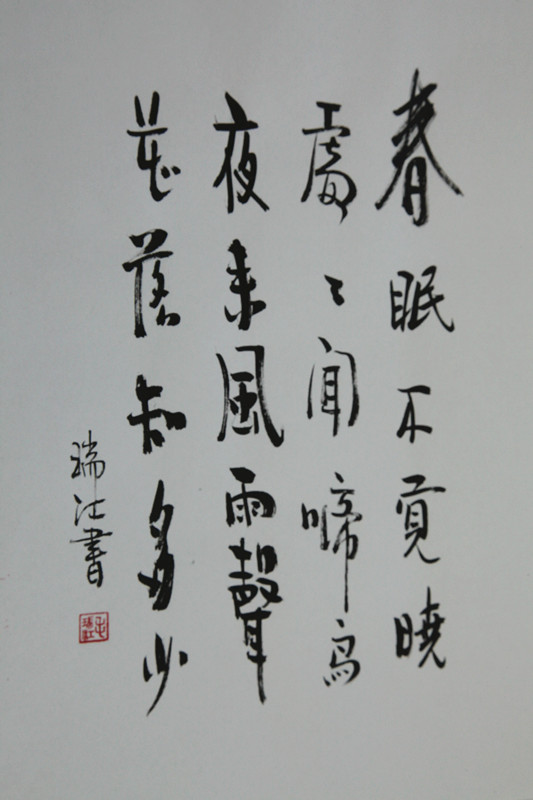 春眠不覺曉
處々聞啼鳥
夜来風雨聲
花落知多少
瑞江書